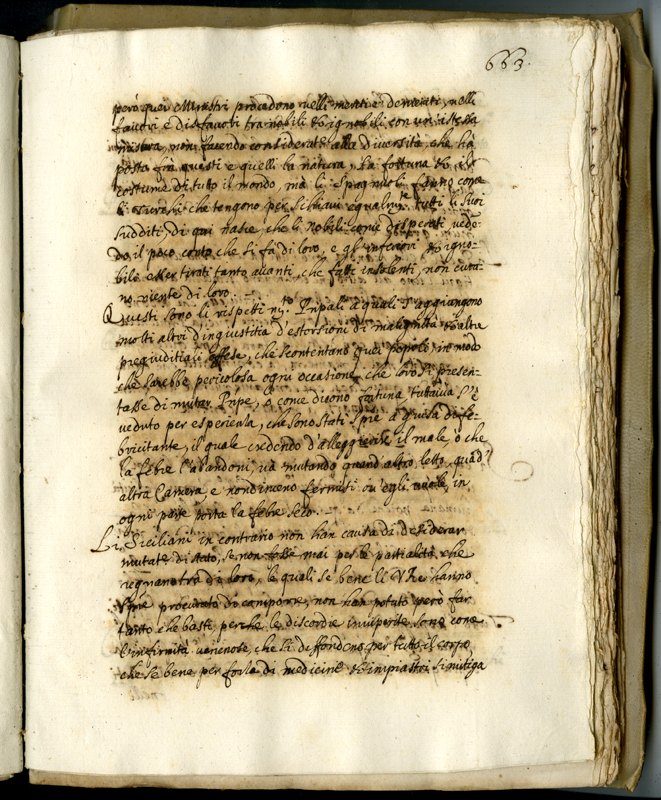 663.
però quei Ministri procedono nelli meriti e demeriti, nelli
favori e disfavori tra nobili et ignobili con un'istessa
misura, non facendo considerate alla diversità che hà
posta frà questi e quelli la natura, la fortuna et il
costume di tutto il mondo, mà li Spagnuoli fanno come
li Turchi che tengono per schiavi tutti li suoi
sudditi, di qui nasce, che li nobili come disperati veden-
do il poco conto che si fà di loro, e gl'inferiori et igno-
bili esser tirati tanto avanti, che fatti insolenti, non cura-
no niente di loro.
Questi sono li rispetti Pnpali a quali s'aggiungono
molti altri d'inguistitia d'estorsioni di malignità et altre
pregiuditiali offese, che scontentano quei popoli, in modo
che sarebbe pericolosa ogni occasione che loro si presen-
tasse di mutar Pnpe, ò come dicono fortuna, tuttavia s'è
veduto per esperienza, che sono stati à guisa di fe-
bricitante, il quale credendo d'alleggerirsi il male, ò che
la febre l'abandoni, và mutando quand'altro letto, quad'
altra Camera, e nondimeno fermisi ov'egli vuole, in
ogni parte porta la febre seco.
Li Siciliani in contrario non han causa di desiderar
mutate di stato, se non fosse mai per le partialità che
regnano trà di loro, le quali se bene li VRe hanno
procurato di comporre, non han potuto però far
tanto che basti, perche le discordie inviperite sono come
l'infirmità venenose, che si diffondono per tutto il corpo
che se bene per forza di medicine et impiastri si mitiga